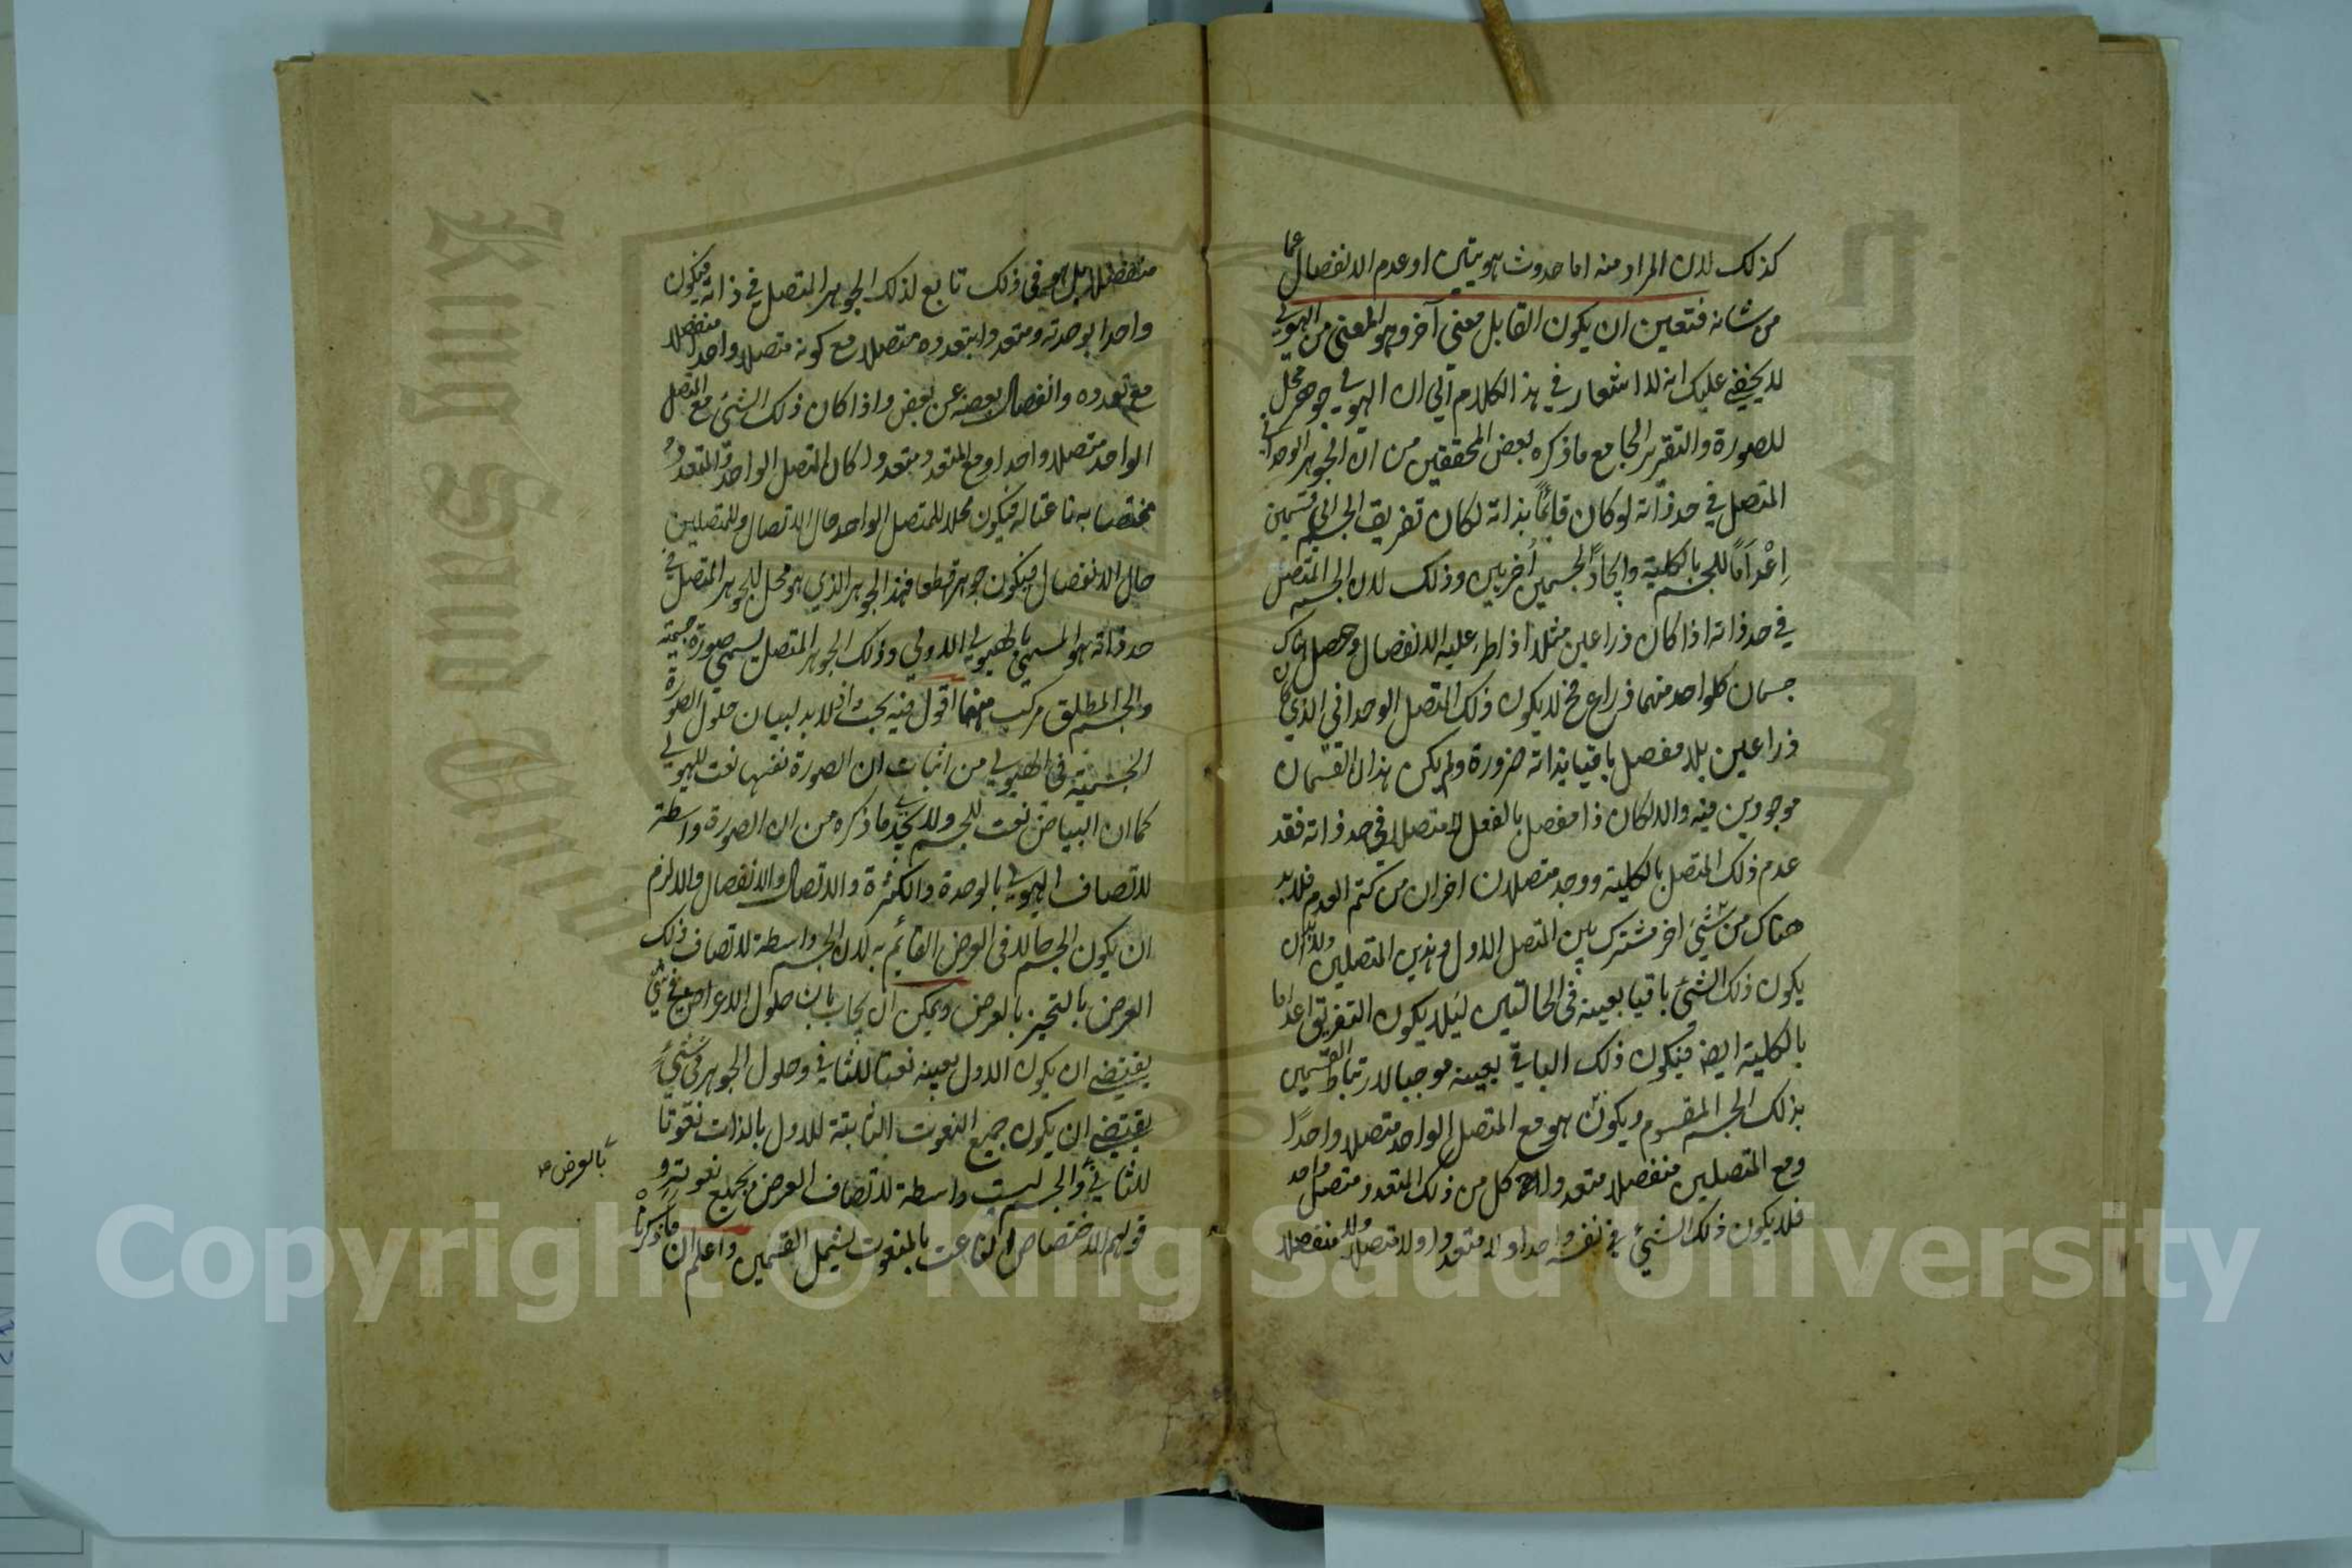 كذلك لان المراد منه اما حدوث هويتين او عدم الانفصال عما
من شانه فتعين ان يكون القابل معنى آخر وهو المعنى من الهيولى
لا يخفى عليك انه لا اشعار في هذا الكلام الى ان الهيولى جوهر محل
للصورة والتقرير الجامع ما ذكره بعض المحققين من ان الجوهر الوحداني
المتصل في حد ذاته لو كان قائماً بذاته لكان تفريق الجسم الى قسمين
اِعْدَاماً للجسم بالكلية وايجاداً لجسمين أخريين وذلك لان الجسم المتصل
في حد ذاته اذا كان ذراعين مثلا اذا طرء عليه الانفصال وحصل هناك
جسمان كلواحد منهما ذراع فح لا يكون ذلك المتصل الوحداني الذي كان
ذراعين بلا مفصل باقيا بذاته ضرورة ولم يكن هذان القسمان
موجودين فيه والا لكان ذا مفصل بالفعل لا متصلا في حد ذاته فقد
عدم ذلك المتصل بالكلية ووجد متصلان اخران من كتم العدم فلا بد
هناك من شئ اخر مشترك بين المتصل الاول وهذين المتصلين ولا بد ان
يكون ذلك الشئ باقيا بعينه في الحالتين ليلا يكون التفريق اعداما
بالكلية ايضا فيكون ذلك الباقي بعينه موجبا لارتباط القسمين
بذلك الجسم المقسوم ويكون هو مع المتصل الواحد متصلا واحداً
ومع المتصلين منفصلا متعددا كل من ذلك المتعدد متصل واحد
فلا يكون ذلك الشئ في نفسه واحدا ولا متعددا ولا متصلا ولا منفصلا
منفصلا بل هو في ذلك تابع لذلك الجوهر المتصل في ذاته فيكون
واحدا بوحدته ومتعددا بتعدده متصلا مع كونه متصلا واحدا منفصلا
مع تعدده وانفصال بعضه عن بعض واذا كان ذلك الشئ مع المتصل
الواحد متصلا واحدا ومع المتعدد متعددا كان المتصل الواحد والمتعدد
مختصا به ناعتا له فيكون محلا للمتصل الواحد حال الاتصال وللمتصلين
حال الانفصال فيكون جوهرا قطعا فهذا الجوهر الذي هو محل للجوهر المتصل في
حد ذاته هو المسمى بالهيولى الاولى وذلك الجوهر المتصل يسمى صورة جسمية
والجسم المطلق مركب منهما اقول فيه بحث اذ لا بد لبيان حلول الصورة
الجسمية في الهيولى من اثبات ان الصورة نفسها نعت للهيولى
كما ان البياض نعت للجسم ولا يجدى ما ذكره من ان الصورة واسطة
لاتصاف الهيولى بالوحدة والكثرة والاتصال والانفصال والا لزم
ان يكون الجسم حالا في العرض القائم به لان الجسم واسطة لاتصاف ذلك
العرض بالتحيز بالعرض ويمكن ان يجاب بان حلول الاعراض في شئ
يقتضي ان يكون الاول بعينه نعتا للثاني وحلول الجوهر في شئ
يقتضي ان يكون جميع النعوت الثابتة للاول بالذات نعوتا
للثاني والجسم ليست واسطة لاتصاف العرض بجميع نعوته و
قولهم الاختصاص الناعت بالمنعوت يشمل القسمين واعلم ان ما ذكرنا
بالعرض صح